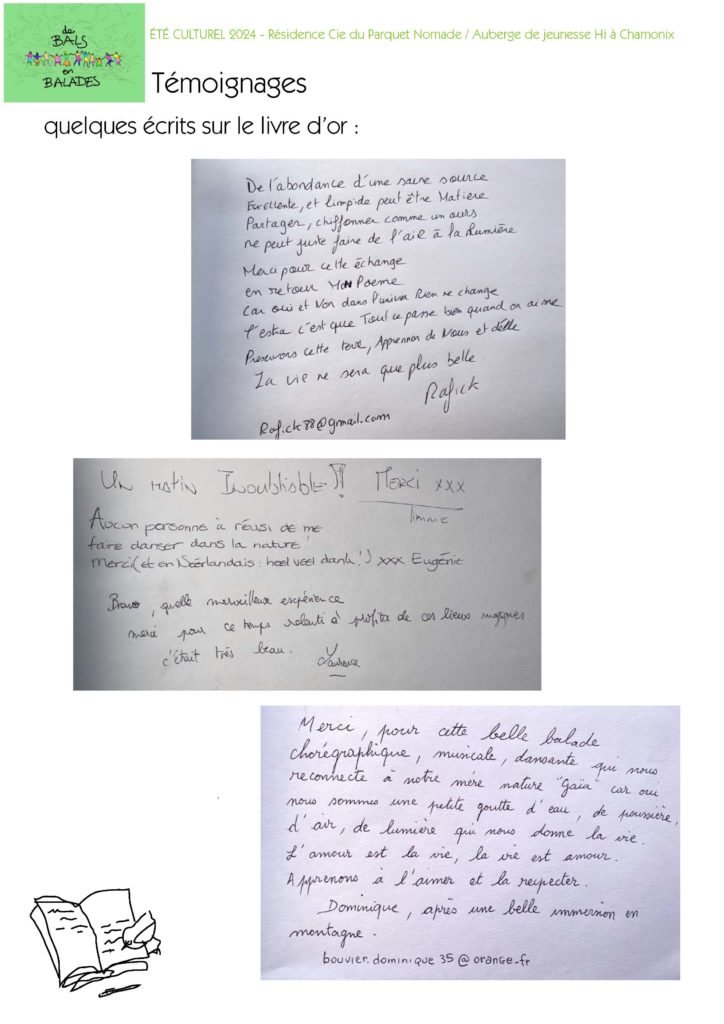 de
BALS
en
BALADES
ÉTÉ CULTUREL 2024 - Résidence Cie du Parquet Nomade / Auberge de jeunesse Hi à Chamonix
Témoignages
quelques écrits sur le livre d'or :
De l'abondance d'une saine source
Excellente, et limpide peut être Matière
Partager, chiffonner comme un ours
ne peut juste faire de l'ail à la Lumière
Merci pour cette échange
en retour Mon Poeme
Car oui et Non dans l'univer Rien ne change
l'extra c'est que Tout ce passe bien quand on aime
Preservons cette terre, Apprenon de Nous et d'elle
La vie ne sera que plus belle
Rafick
Rafick88@gmail.com
Un matin Inoubliable !! Merci xxx
Timme
Aucun personne à réusi de me
faire danser dans la nature !
merci (et en Néerlandais : heel veel dank !) xxx Eugénie
Bravo, quelle merveilleuse expérience
merci pour ce temps ralenti à profiter de ces lieux magiques
c'était très beau. Laurence
Merci, pour cette belle balade
chorégraphique, musicale, dansante qui nous
reconnecte à notre mère nature "Gaïa" car oui
nous sommes une petite goutte d'eau, de poussière,
d'air, de lumière qui nous donne la vie.
L'amour est la vie, la vie est amour.
Apprenons à l'aimer et la respecter.
Dominique, après une belle immersion en
montagne.
bouvier.dominique35@orange.fr